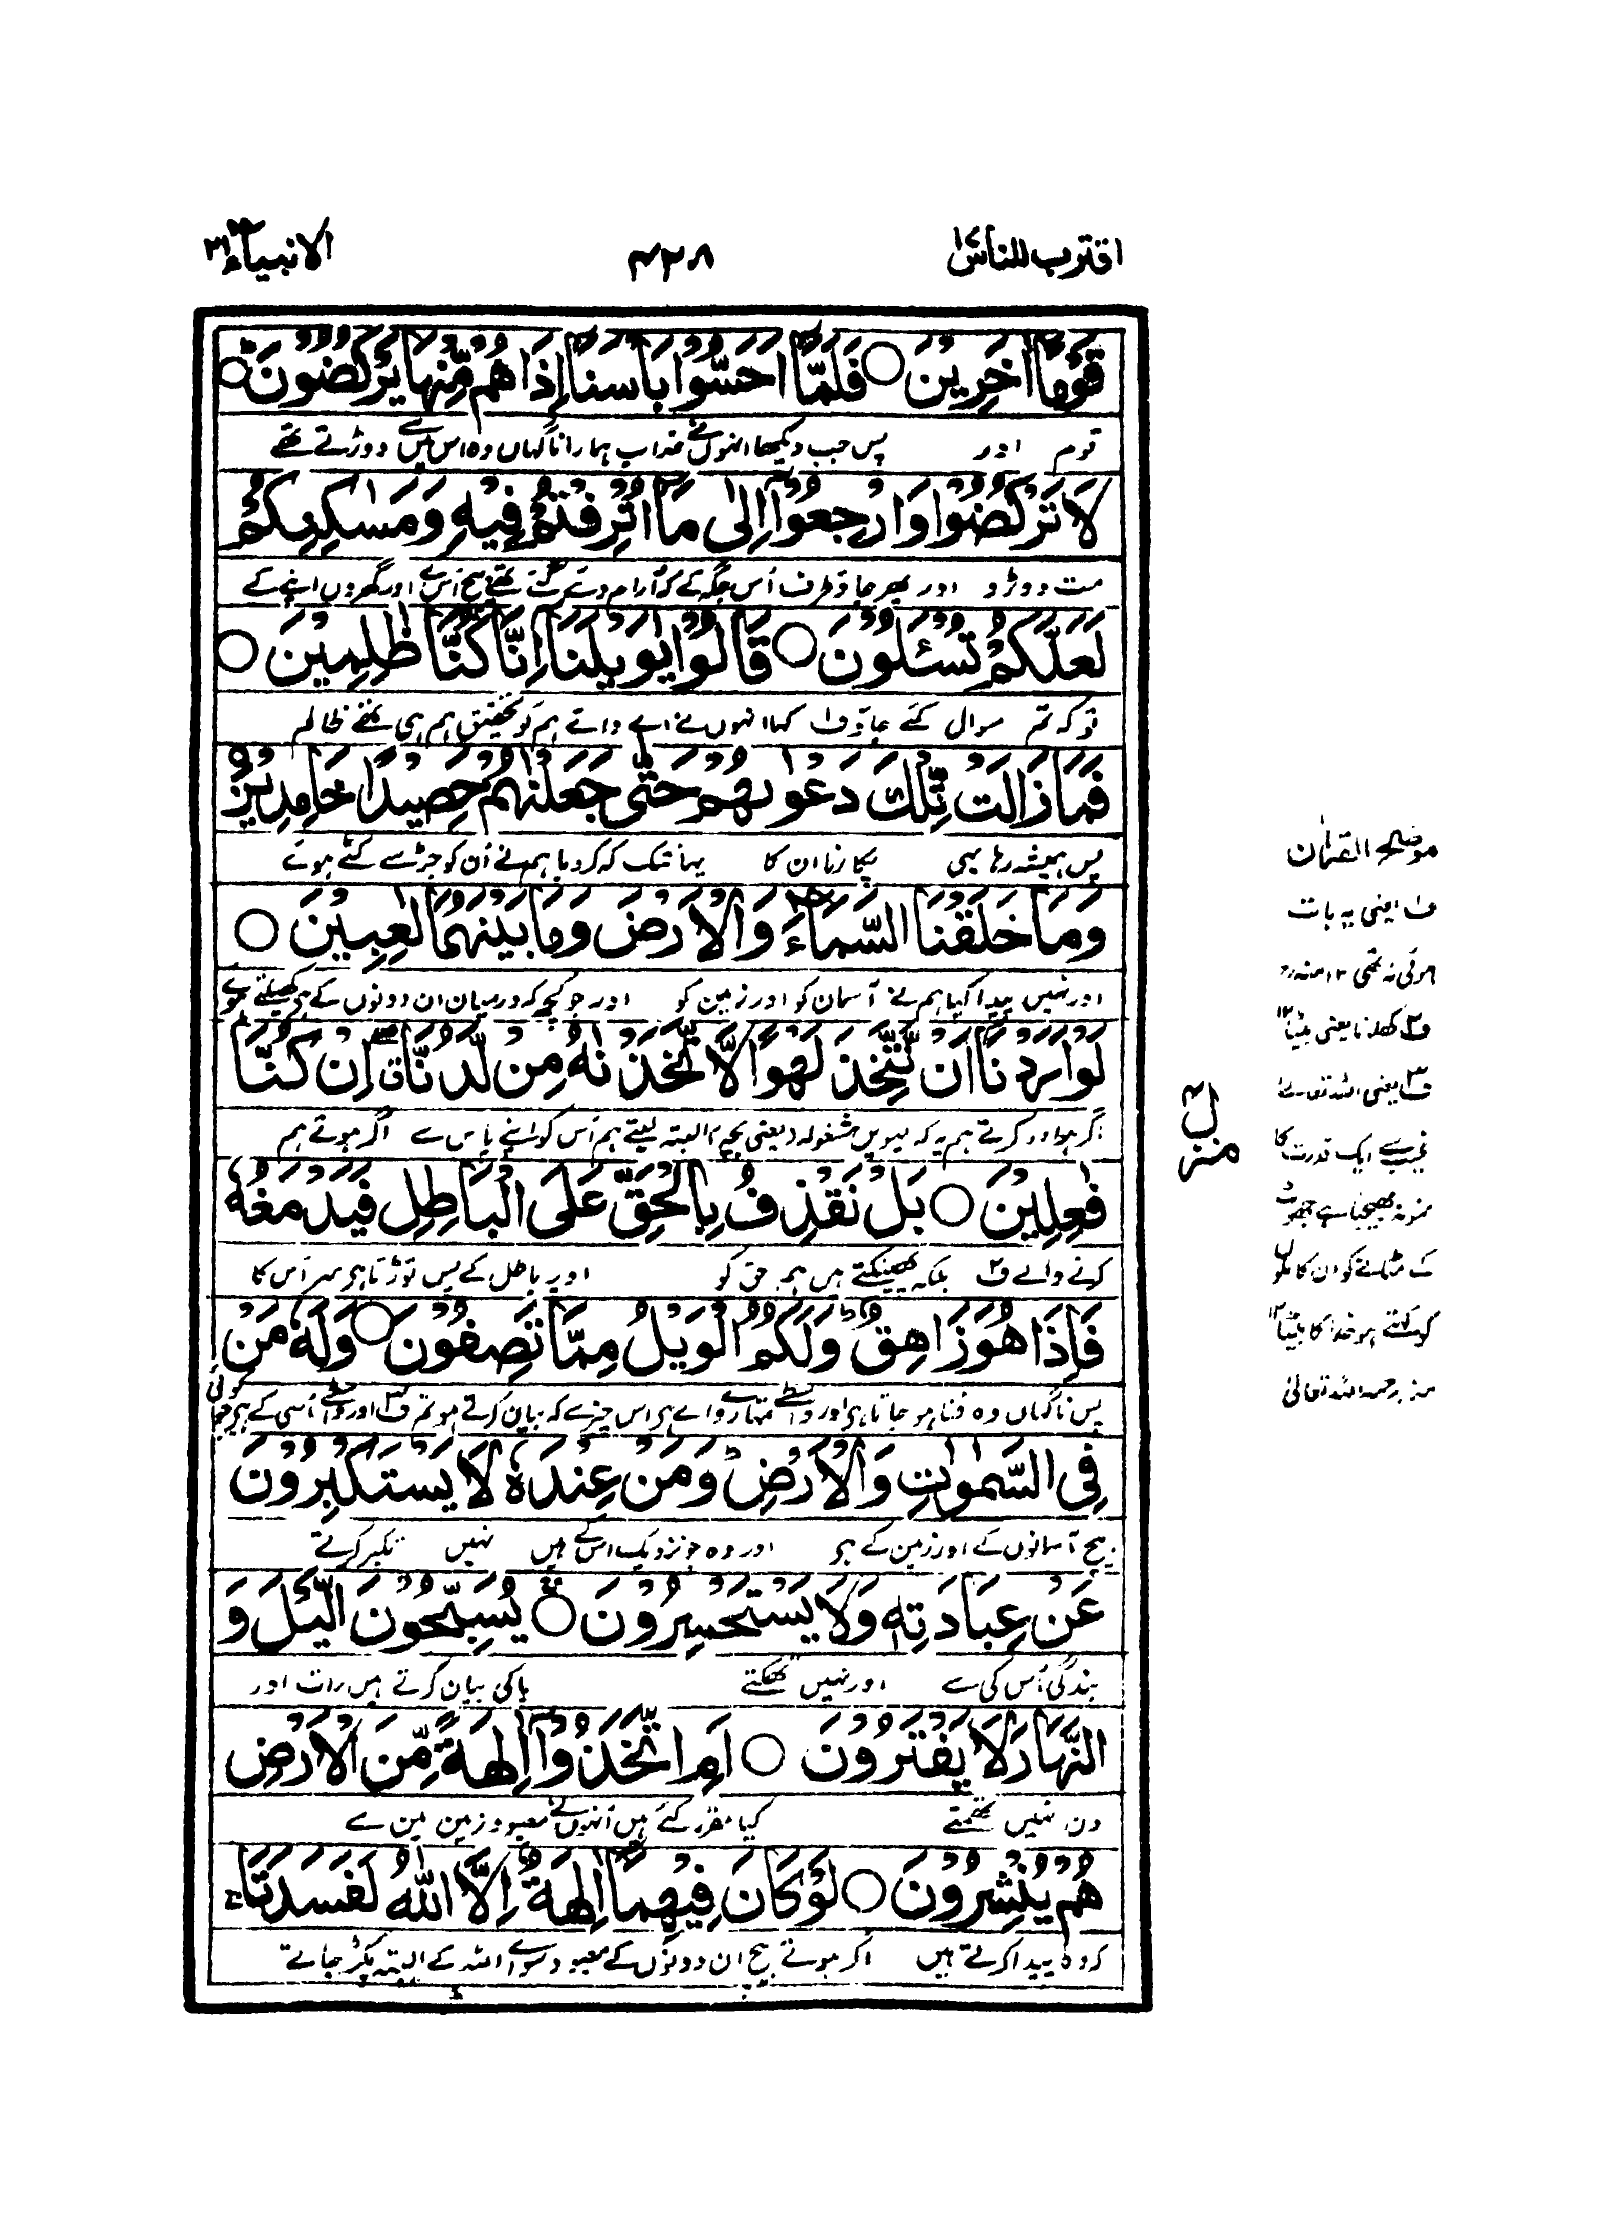 اقترب للناس ۱۷
۴۲۸
الانبیاء ۲۱
قَوْمًا اٰخَرِیْنَ ○ فَلَمَّاۤ اَحَسُّوْا بَاْسَنَاۤ اِذَا هُمْ مِّنْهَا یَرْكُضُوْنَ ؕ○
قوم اور پس جب دیکھا انہوں نے عذاب ہمارا ناگہاں وہ اس میں سے دوڑتے تھے
لَا تَرْكُضُوْا وَ ارْجِعُوْۤا اِلٰى مَاۤ اُتْرِفْتُمْ فِیْهِ وَ مَسٰكِنِكُمْ
مت دوڑو اور پھر جاؤ طرف اُس جگہ کے کہ آرام دئے گئے تھے بیچ اُس کے اور گھروں اپنے کے
لَعَلَّكُمْ تُسْــٴَـلُوْنَ ○ قَالُوْا یٰوَیْلَنَاۤ اِنَّا كُنَّا ظٰلِمِیْنَ ○
تو کہ تم سوال کئے جاؤ ف۱ کہا انہوں نے اے وائے ہم کو تحقیق ہم ہی تھے ظالم
فَمَا زَالَتْ تِّلْكَ دَعْوٰىهُمْ حَتّٰى جَعَلْنٰهُمْ حَصِیْدًا خٰمِدِیْنَ
پس ہمیشہ رہا یہی پکارنا ان کا یہانتک کہ کردیا ہم نے اُن کو جڑ سے کٹے ہوئے
وَ مَا خَلَقْنَا السَّمَآءَ وَ الْاَرْضَ وَ مَا بَیْنَهُمَا لٰعِبِیْنَ ○
اور نہیں پیدا کیا ہم نے آسمان کو اور زمین کو اور جو کچھ کہ درمیان ان دونوں کے ہے کھیلتے ہوئے
لَوْ اَرَدْنَاۤ اَنْ نَّتَّخِذَ لَهْوًا لَّاتَّخَذْنٰهُ مِنْ لَّدُنَّاۤ ق اِنْ كُنَّا
اگر ارادہ کرتے ہم یہ کہ لیویں مشغولہ (یعنی بچہ) البتہ لیتے ہم اُس کو اپنے پاس سے اگر ہوتے ہم
فٰعِلِیْنَ ○ بَلْ نَقْذِفُ بِالْحَقِّ عَلَى الْبَاطِلِ فَیَدْمَغُهٗ
کرنے والے ف۲ بلکہ پھینکتے ہیں ہم حق کو اوپر باطل کے پس توڑتا ہے سر اُس کا
فَاِذَا هُوَ زَاهِقٌ ؕ وَ لَكُمُ الْوَیْلُ مِمَّا تَصِفُوْنَ ○ وَ لَهٗ مَنْ
پس ناگہاں وہ فنا ہو جاتا ہے اور واسطے تمہارے وائے ہے اس چیز سے کہ بیان کرتے ہو تم ف۳ اور واسطے اُسی کے ہے جو کوئی
فِی السَّمٰوٰتِ وَ الْاَرْضِ ؕ وَ مَنْ عِنْدَهٗ لَا یَسْتَكْبِرُوْنَ
بیچ آسمانوں کے اور زمین کے ہے اور وہ جو نزدیک اس کے ہیں نہیں تکبر کرتے
عَنْ عِبَادَتِهٖ وَ لَا یَسْتَحْسِرُوْنَ ○ یُسَبِّحُوْنَ الَّیْلَ وَ
بندگی اُس کی سے اور نہیں تھکتے پاکی بیان کرتے ہیں رات اور
النَّهَارَ لَا یَفْتُرُوْنَ ○ اَمِ اتَّخَذُوْۤا اٰلِهَةً مِّنَ الْاَرْضِ
دن نہیں تھمتے کیا مقرر کئے ہیں اُنہوں نے معبود زمین میں سے
هُمْ یُنْشِرُوْنَ ○ لَوْ كَانَ فِیْهِمَاۤ اٰلِهَةٌ اِلَّا اللّٰهُ لَفَسَدَتَا ۚ
کہ وہ پیدا کرتے ہیں اگر ہوتے بیچ ان دونوں کے معبود سوائے اللہ کے البتہ بگڑ جاتے
منزل ۴
موضح القرآن
ف۱ یعنی یہ بات
ہوئی نہ تھی ۱۲ منہ رح
ف۲ کھلونا یعنی بیٹا ۱۲
ف۳ یعنی اللہ تعالے
غیب سے ایک قدرت کا
نمونہ بھیجتا ہے جھوٹ
کے مٹانے کو ان کا نکلوں
کو کہتے ہو خدا کا بیٹا ۱۲
منہ رحمہ اللہ تعالیٰ